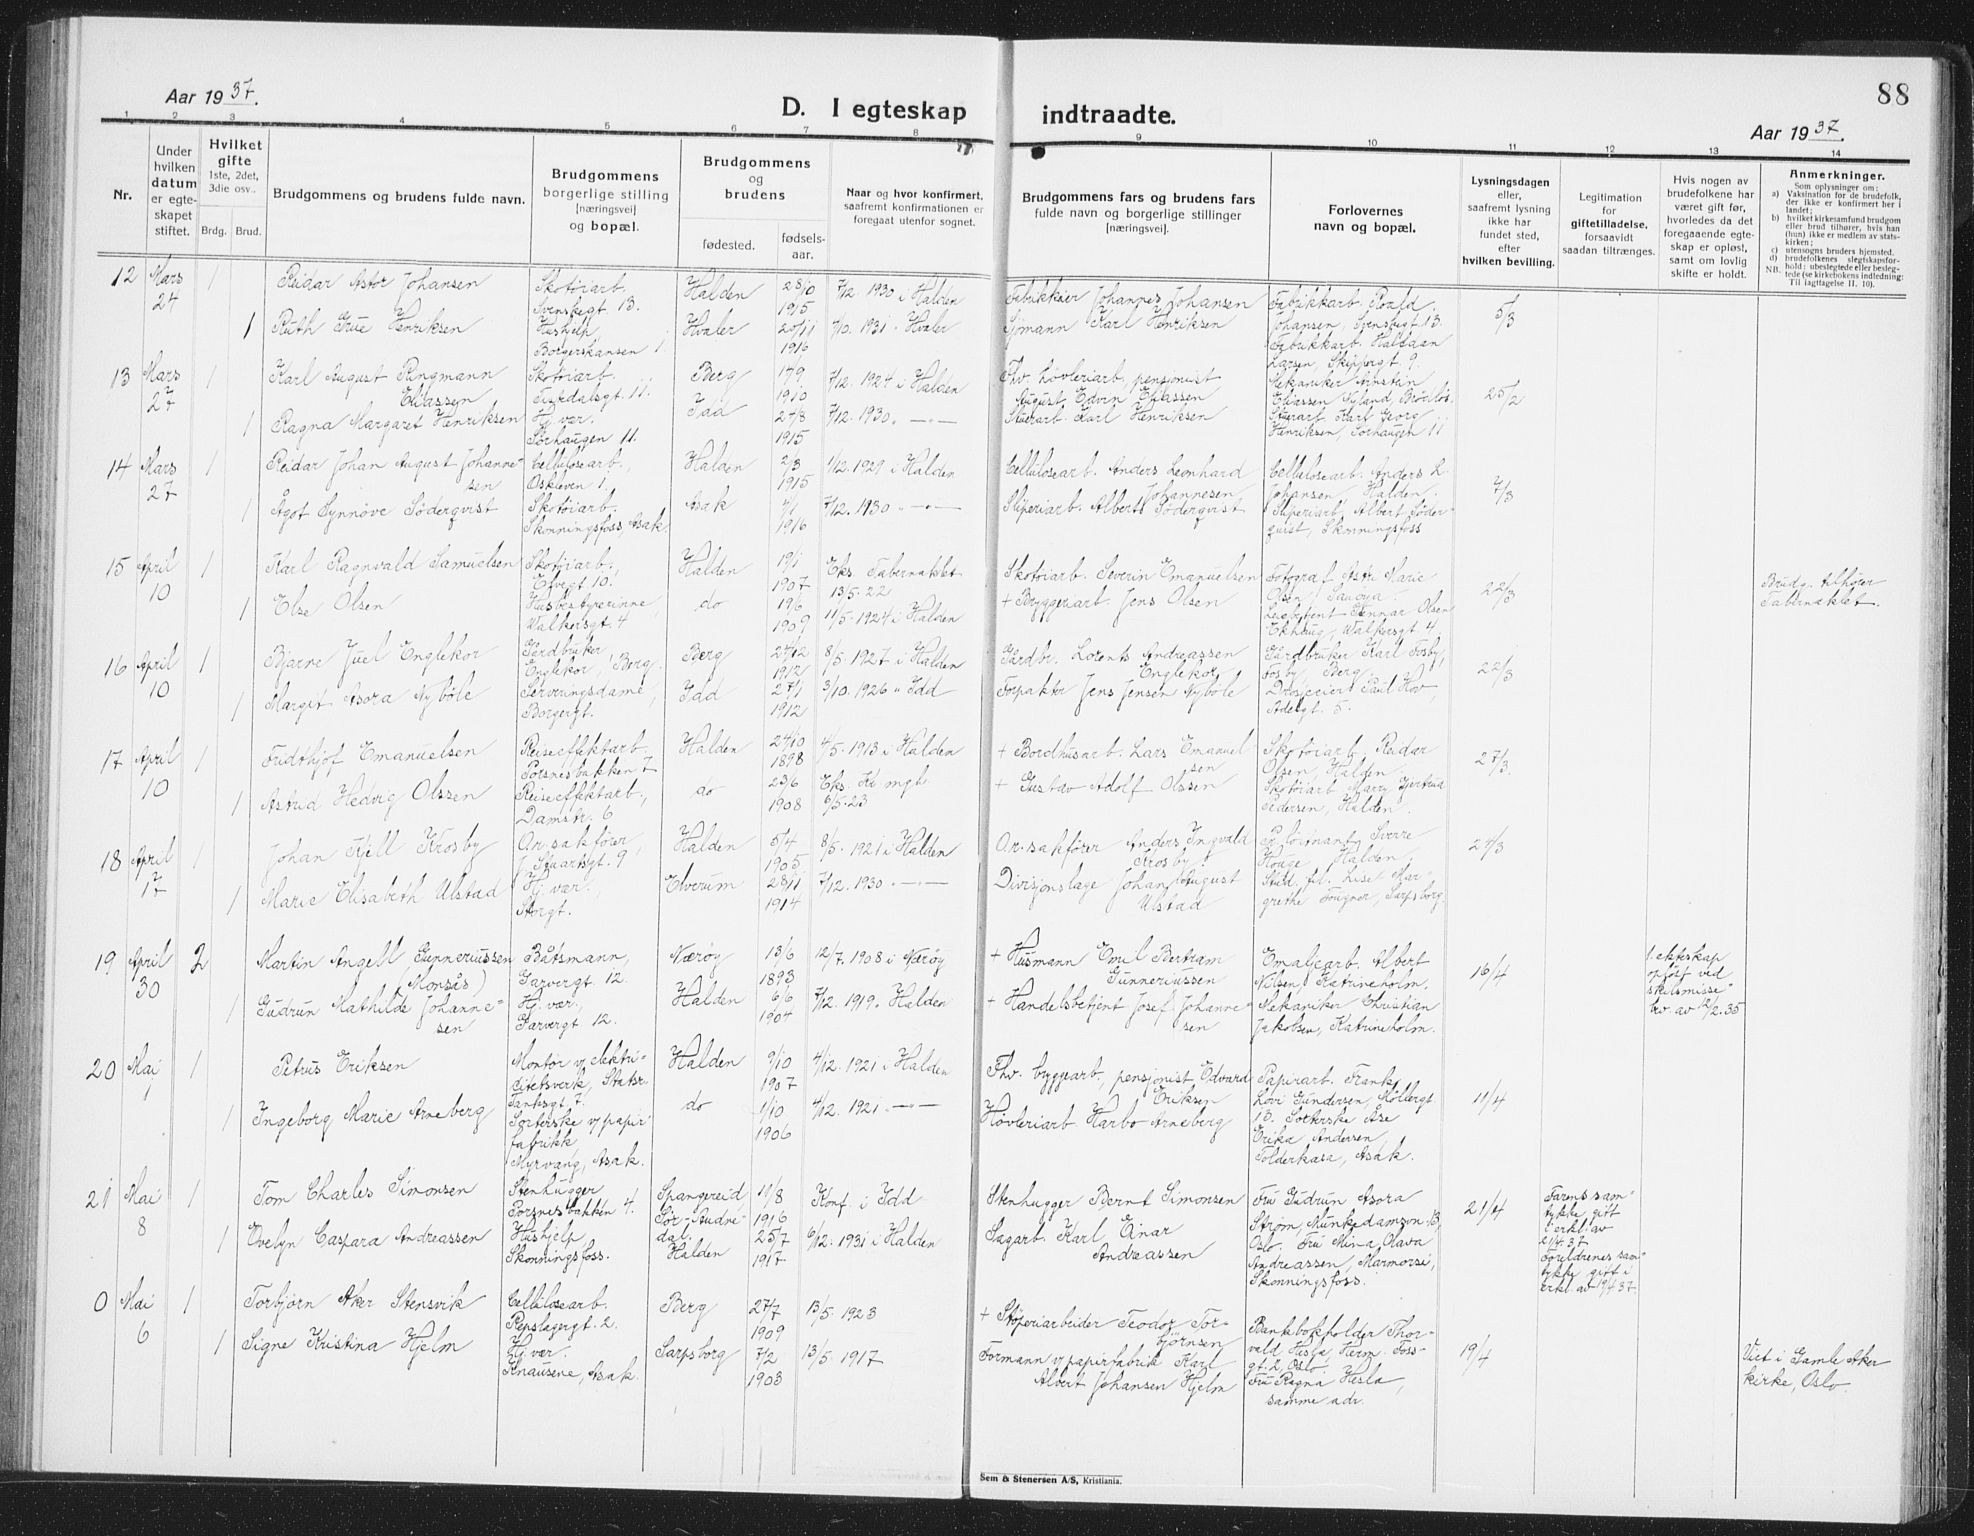 88
Aar 1937.
D. I egteskap indtraadte.
Aar 1937.
1 2 3 4 5 6 7 8 9 10 11 12 13 14
Nr.
Under
hvilken
datum
er egte-
skapet
stiftet.
Hvilket
gifte
1ste, 2det,
3die osv..
Brdg. Brud.
Brudgommens og brudens fulde navn.
Brudgommens
borgerlige stilling
[næringsvei]
og bopæl.
Brudgommens
og
brudens
fødested.
fødsels-
aar.
Naar og hvor konfirmert,
saafremt konfirmationen er
foregaat utenfor sognet.
Brudgommens fars og brudens fars
fulde navn og borgerlige stillinger
[næringsvei].
Forlovernes
navn og bopæl.
Lysningsdagen
eller,
saafremt lysning
ikke har
fundet sted,
efter
hvilken bevilling.
Legitimation
for
giftetilladelse,
forsaavidt
saadan tiltrænges.
Hvis nogen av
brudefolkene har
været gift før,
hvorledes da det
foregaaende egte-
skap er opløst,
samt om lovlig
skifte er holdt.
Anmerkninger.
Som oplysninger om:
a) Vaksination for de brudefolk,
der ikke er konfirmert her i
landet;
b) hvilket kirkesamfund brudgom
eller brud tilhører, hvis han
(hun) ikke er medlem av stats-
kirken;
c) utensogns bruders hjemsted.
d) brudefolkenes slegtskapsfor-
hold: ubeslegtede eller besleg-
NB. tede (se kirkebokens indledning:
Til iagttagelse II. 10).
12 Mars 24 1 Reidar Astor Johansen
Skotøiarb. Svenskegt 13.
Halden 28/10 1915
7/12 1930 i Halden
Fabrikkeier Johannes Johansen
Fabrikkarb. Roald Johansen, Svenskegt. 13.
5/3
1 Ruth Grue Henriksen
Hushjelp Borgerskansen 1
Hvaler 20/11 1916
7/10. 1931 i Hvaler
Sjömann Karl Henriksen
Fabrikkarb. Larsen, Skippergt 9.
13 Mars 27 1 Karl August Ringmann Eliassen
Skotøiarb. Tistedalsgt. 11.
Berg 14/9 1910
7/12. 1924 i Halden
Fhv. høvleriarb, pensjonist August Edvin Eliassen
Mekaniker Arnstin Eliassen
25/2
1 Ragna Margaret Henriksen
Hj. vær. Sørhaugen 11.
Idd 27/8 1915
7/12. 1930. —〃—
Stuerarb. Karl Henriksen
Stuerarb. Karl Georg Henriksen, Sorhaugen 11
14 Mars 27 1 Reidar Johan August Johannesen
Cellulosearb., Oskleven 1.
Halden 2/3 1915
1/12. 1929 i Halden
Cellulosearb. Anders Leonhard Johannesen
Cellulosearb. Anders L. Johansen, Halden.
7/3
1 Ågot Synnöve Söderqvist
Skotøiarb. Skonningsfoss, Asak.
Asak 4/1 1916
7/12. 1930 —〃—
Sliperiarb. Albert Söderqvist
Sliperiarb, Albert Söderquist, Skonningsfoss
15 April 10 1 Karl Ragnvald Samuelsen
Skotøiarb., Elvegt 10.
Halden 19/1 1907
Eks. Tabernaklet 13/5.22
Skotøiarb. Severin Emanuelsen
Fotograf Astri Marie Olsen, Savoya.
22/3
Brudg. tilhører Tabernaklet.
1 Else Olsen
Husbestyrerinne Walkersgt. 4
do 19/6 1909
11/5. 1924 i Halden
+ Bryggeriarb. Jens Olsen
Gunnar Olsen Ekhaug, Walkersgt 4
16 April 10 1 Bjarne Juel Englekor
Gårdbruker Englekor, Berg.
Berg 24/12 1912
8/5. 1927 i Halden
Gårdbr. Lorents Andreassen Englekor
Gårdbruker Karl Fosby, Fosby, Berg.
22/3
1 Margit Asora Nyböle
Serveringsdame, Borgergt.
Idd 27/1 1912
3/10. 1926 〃 Idd
Forpakter Jens Jensen Nyböle
Drosjeeier Paul Hov, Adelgt. 5.
17 April 10 1 Fridthjof Emanuelsen
Reiseeffektarb. Porsnesbakken 7
Halden 24/10 1898
4/5. 1913 i Halden
+ Bordhusarb. Lars Emanuelsen
Skotøiarb. Reidar Olsen, Halden
27/3.
1 Astrid Hedvig Olssen
Reiseeffektarb., Damstr. 6
do 23/6 1908
Eks. Kr mgh 6/5. 23
+ Gustav Adolf Olssen
Skotøiarb Marry Gjertrud Pedersen, Halden.
18 April 17 1 Johan Kjell Krosby
O.r. sakfører, J. Stuartsgt. 9
Halden 5/4 1905
8/5. 1921 i Halden
O.r. sakfører Anders Ingvald Krosby
Pr. løitnant Sverre Houge, Halden.
24/3
1 Marie Elisabeth Ulstad
Hj. vær. Storgt.
Elverum 28/11 1914
7/12. 1930 —〃—
Divisjonslæge Johan August Ulstad
Stud. fil. Liset Margrethe Fougner, Sarpsborg.
19 April 30 2 Martin Angell Gunneriussen (Monsås)
Båtsmann, Garvergt 12.
Nærøy 13/6 1893
12/7. 1908 i Nærøy
+ Husmann Emil Bertram Gunneriussen
Emaljearb. Albert Nilsen, Katrineholm.
16/4
1. ekteskap opløst ved skilsmisse- bev. av 12/2. 35
1 Gudrun Mathilde Johannesen
Hj. vær, Garvergt 12.
Halden 6/6 1904
7/12. 1919. Halden
+ Handelsbetjent Josef Johannesen
Mekaniker Christian Jakobsen, Katrineholm.
20 Mai 1 1 Petrus Eriksen
Montør v/ elektrisitetsverk, Statsr. Tanksgt 7.
Halden 9/10 1907
4/12. 1921 i Halden
Fhv. byggearb, pensjonist Edvard Eriksen
Papirarb. Frank Lovi Gundersen, Møllergt 13.
11/4
1 Ingeborg Marie Arneberg
Sorterske v/ papirfabrikk, Myrvang, Asak.
do 1/10 1906
4/12. 1921. —〃—
Høvleriarb. Harbo Arneberg
Sorterske Åse Erika Andersen Folderkasa, Asak.
21 Mai 8 1 Tom Charles Simonsen
Stenhugger Porsnesbakken 4.
Spangereid, Sør-Audnedal. 11/8 1916
Konf. i Idd
Stenhugger Bernt Simonsen
Fru Gudrun Asora Strøm, Munkedamsvn. 13, Oslo.
21/4
Farens samtykke gitt i erkl. av 21/4. 37
1 Evelyn Caspara Andreassen
Hushjelp, Skonningsfoss.
Halden 25/7 1917
6/12. 1931 i Halden
Sagarb. Karl Einar Andreassen
Fru Mina Olava Andreassen, Skonningsfoss.
Foreldrenes samtykke gitt i erkl. av 19/4 37.
0 Mai 6 1 Torbjørn Aker Stensvik
Cellulosearb. Repslagergt. 2.
Berg 27/7 1909
13/5. 1923
+ Støperiarbeider Teodor Torbjörnsen
Bankbokholder Thorvald Hesla, Herm. Fossgt. 2, Oslo
19/4
Viet i Gamle Aker kirke, Oslo.
1 Signe Kristina Hjelm
Hj. vær. Knausene, Asak.
Sarpsborg 7/2 1903
13/5. 1917
Formann v/ papirfabrik Karl Albert Johansen Hjelm
Fru Ragna Hesla, samme adr.
Sem & Stenersen A/S, Kristiania.